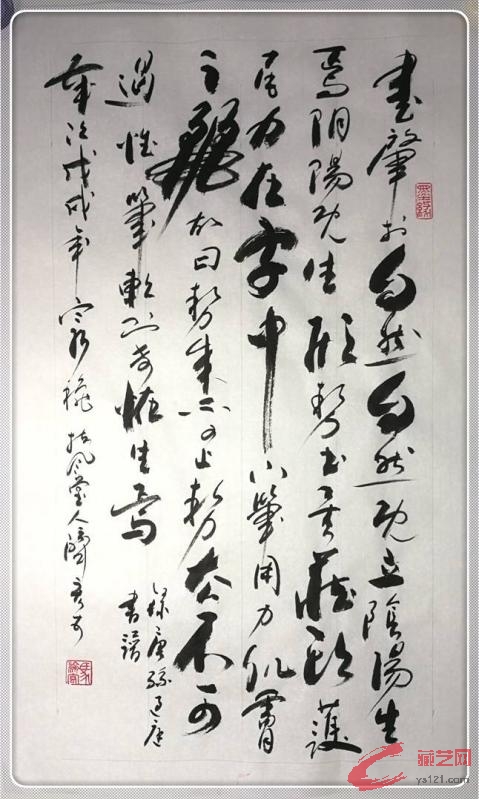 書肇於自然自然既立陰陽生
焉阴陽既生形勢出矣藏頭護
尾力在字中下筆用力肌膚
之麗故曰勢来不可止勢去不可
遏惟筆軟則奇怪生焉
錄唐孫過庭
書譜
歲次戊戌年 穐扶風堂人
藏艺网
ys121.com